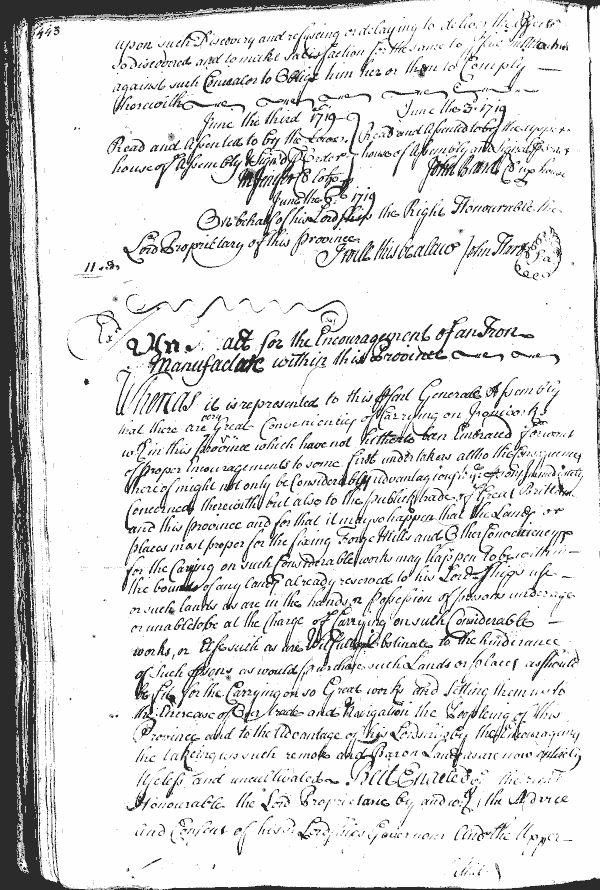 443
upon such Discovery and refuseing or delaying to deliver the Effects
so discovered and to make Satisfaction for the same to
against such Concealor to Oblige him her or them to Comply
therewith
June the third 1719
June the 3d 1719
Read and Assented to by the Lower
house of Assembly & Signd P Order
Read and Assented to by the upper
house of Assembly and Signed
M Jenifer Cl lo h
John Beard Cl up house
June the 6 1719
On behalf of his Lordship the Right Honourable the
Lord Proprietary of this Province
I will this be a Law John Hart
An act for the Encouragement of an Iron
Manufacture within this Province
Whereas it is represented to this present Generale Assembly
that there are very Great Conveniencies of Carrying on Iron works
wth in this province which have not hitherto been Embraced for want
of proper incouragements to some first undertakers altho the Consequence
thereof might not only be Considerably advantagious to ye persons immediately
Concerned therewith but also to the publick trade of Great Brittain
and this province and for that it may so happen that the Lands or
places most proper for the fixing Forge Mills and Other Conveniencys
for the Carrying on such Considerable works may happen to be within
the bounds of any land already reserved to his Lordships use
or such lands as are in the hands or possession of persons under age
or unable to be at the Charge of Carrying on such Considerable
works, or Else such as are Wilfully obstinate to the hinderance
of such psons as would purchase such Lands or places as should
be fit for the Carrying on so Great works and Setting them up to
the Increase of Our trade and Navigation the Peopleing of this
Province and to the Advantage of his Lordship by the Encourageing
the takeing up such remote and Baron Lands as are now entirely
Useless and uncultivated Be it Enacted by the right
Honourable the Lord Proprietarie by and wth the Advice
and Consent of his Lordships Governour and the Upper